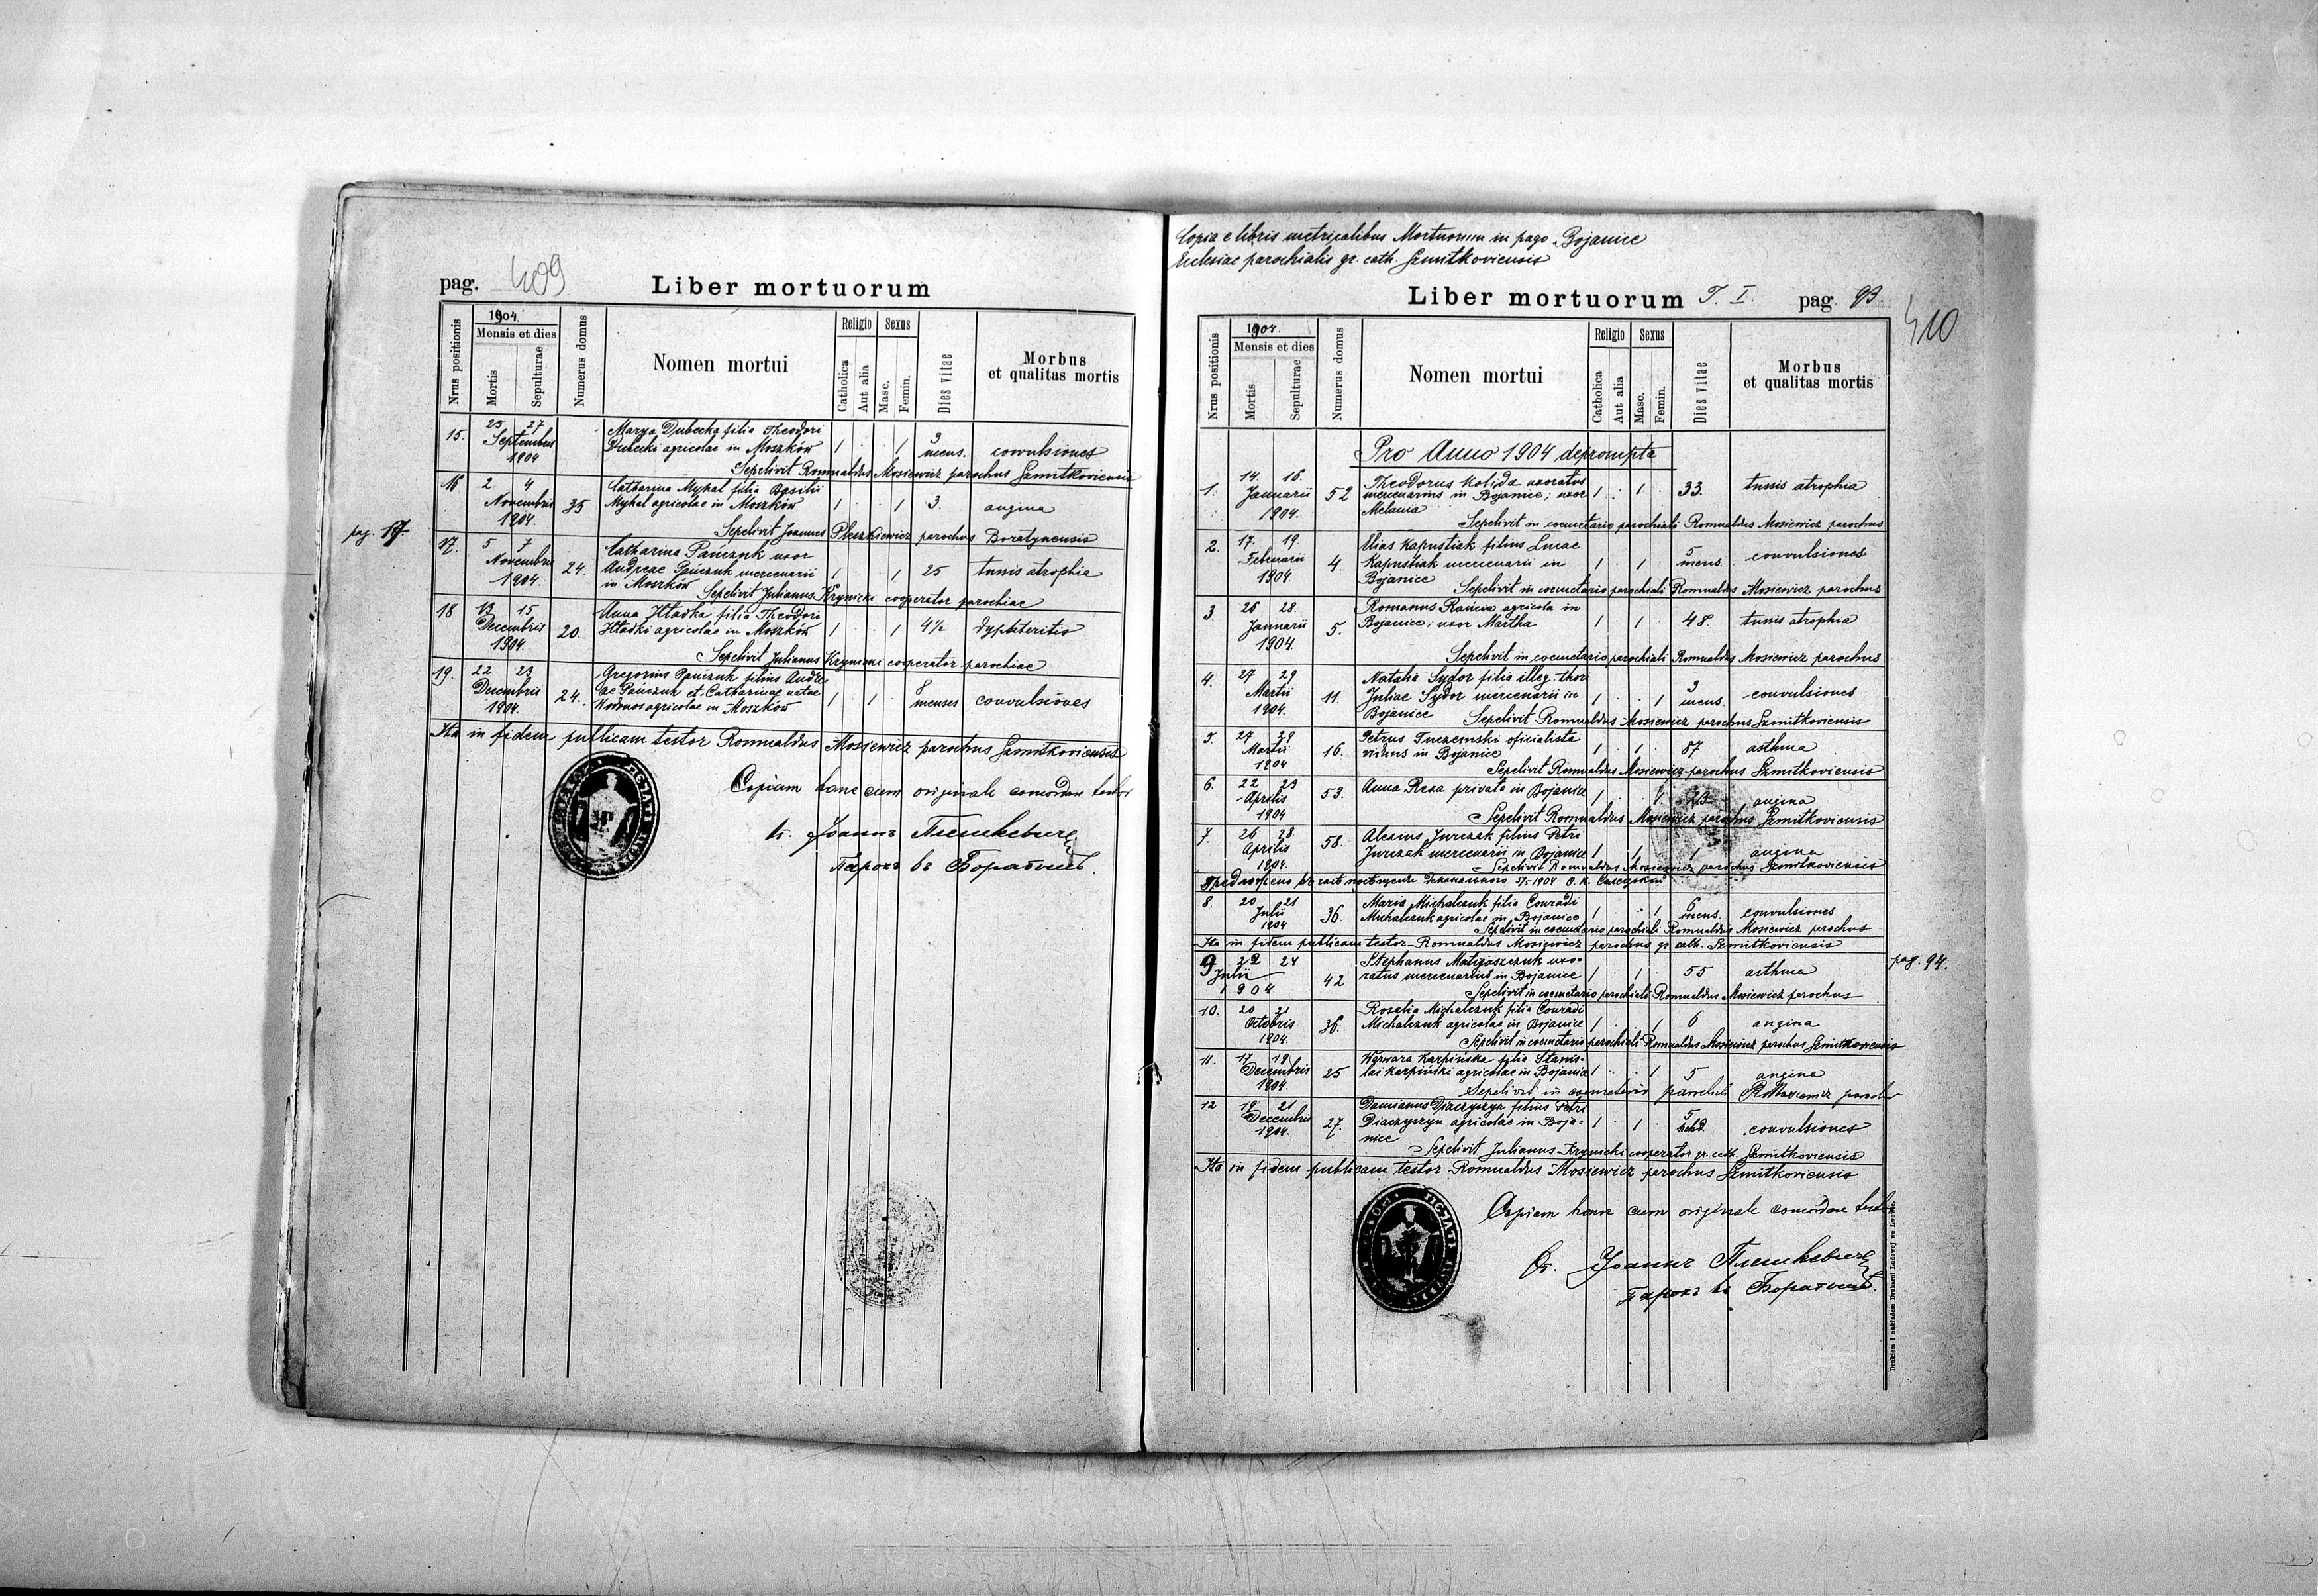 pag. 409
Liber mortuorum
Nrus positionis
1904.
Mensis et dies
Mortis
Sepulturae
Numerus domus
Nomen mortui
Religio
Catholica
Aut alia
Sexus
Masc.
Femin.
Dies vitae
Morbus
et qualitas mortis
15. 25 27 Marya Dubecka filia Theodori
Septembris Dubecki agricolae in Moszków 1 1 3 mens. convulsiones
1904
Sepelivit Romualdus Mosiewicz parochus Szmitkoviensis
16 2 4 Catharina Mykal filia Basilii
Novembris 35 Mykal agricolae in Moszków 1 1 3. angina
1904.
Sepelivit Joannes Pleszkiewicz parochus Boratynensis
pag. 17.
17. 5 7 Catharina Pańczuk uxor
Novembris 24. Andreae Pańczuk mercenarii 1 1 25 tussis atrophia
1904. in Moszków
Sepelivit Julianus Krynicki cooperator parochiae
18 13 15 Anna Hładka filia Theodori
Decembris 20. Hładki agricolae in Moszków 1 1 4½ dyphteritis
1904.
Sepelivit Julianus Krynicki cooperator parochiae
19. 22 23 Gregorius Pańczuk filius Andre
Decembris 24. ae Pańczuk et Catharinae natae 1 1 8 menses convulsiones
1904. agricolae in Moszków
Ita in fidem publicam testor Romualdus Mosiewicz parochus Szmitkoviensis
Copiam hanc cum originale concordare testor
Іоаннъ Плешкевичъ
Парохъ въ Боратынѣ.
Copia e libris metricalibus Mortuorum in pago Bojanice
Ecclesiae parochialis gr. cath. Szmitkoviensis
Liber mortuorum T. I. pag. 93.
410
Nrus positionis
1904.
Mensis et dies
Mortis
Sepulturae
Numerus domus
Nomen mortui
Religio
Catholica
Aut alia
Sexus
Masc.
Femin.
Dies vitae
Morbus
et qualitas mortis
Pro Anno 1904 deprompta
1. 14. 16. Theodorus Kolida uxoratus
Januarii 52 mercenarius in Bojanice; uxor 1 1 33. tussis atrophia
1904. Melania
Sepelivit in coemetario parochiali Romualdus Mosiewicz parochus
2. 17. 19. Elias Kapustiak filius Lucae
Februarii 4. Kapustiak mercenarii in 1 1 5 mens. convulsiones
1904. Bojanice
Sepelivit in coemetario parochiali Romualdus Mosiewicz parochus
3. 26 28. Romanus agricola in
Januarii 5. Bojanice; uxor Martha 1 1 48. tussis atrophia
1904
Sepelivit in coemetario parochiali Romualdus Mosiewicz parochus
4. 27 29 Natalia Sydor filia illeg. thor
Martii 11. Juliae Sydor mercenarii in 1 1 3 mens. convulsiones
1904. Bojanice
Sepelivit Romualdus Mosiewicz parochus Szmitkoviensis
5. 27 29 Petrus Tuczemski oficialista
Martii 16. viduus in Bojanice 1 1 87 asthma
1904
Sepelivit Romualdus Mosiewicz parochus Szmitkoviensis
6. 22 23 Anna Rexa privata in Bojanice
Aprilis 53. 1 1 23 angina
1904
Sepelivit Romualdus Mosiewicz parochus Szmitkoviensis
7. 26 28 Alexius Jurczak filius Petri
Aprilis 58. Jurczak mercenarii in Bojanice 1 1 1 angina
1904.
Sepelivit Romualdus Mosiewicz parochus Szmitkoviensis
1904
8. 20 21 Maria Michalczuk filia Conradi
Julii 36. Michalczuk agricolae in Bojanice 1 1 6 mens. convulsiones
1904
Sepelivit in coemetario parochiali Romualdus Mosiewicz parochus
Ita in fidem publicam testor Romualdus Mosiewicz parochus gr. cath. Szmitkoviensis
pag. 94.
9 22 24 Stephanus Matijaszczuk uxo-
Julii 42 ratus mercenarius in Bojanice 1 1 55 asthma
1904
Sepelivit in coemetario parochiali Romualdus Mosiewicz parochus
10. 20 21 Rosalia Michalczuk filia Conradi
Octobris 36. Michalczuk agricolae in Bojanice 1 1 6 angina
1904.
Sepelivit in coemetario parochiali Romualdus Mosiewicz parochus Szmitkoviensis
11. 17 19 Warwara Karpińska filia Stanis-
Decembris 25 lai Karpiński agricolae in Bojanice 1 1 5 angina
1904.
Sepelivit in coemeterio parochiali R Mosiewicz parochus
12 19 21 Damianus Djaczyszyn filius Petri
Decembris 27. Diaczyszyn agricolae in Boja- 1 1 5 convulsiones
1904. nice
Sepelivit Julianus Krynicki cooperator gr. cath. Szmitkoviensis
Ita in fidem publicam testor Romualdus Mosiewicz parochus Szmitkoviensis
Copiam hanc cum originale concordare testor
Іоаннъ Плешкевичъ
Парохъ въ Боратынѣ.
Drukiem i nakładem Drukarni Ludowej we Lwowie.